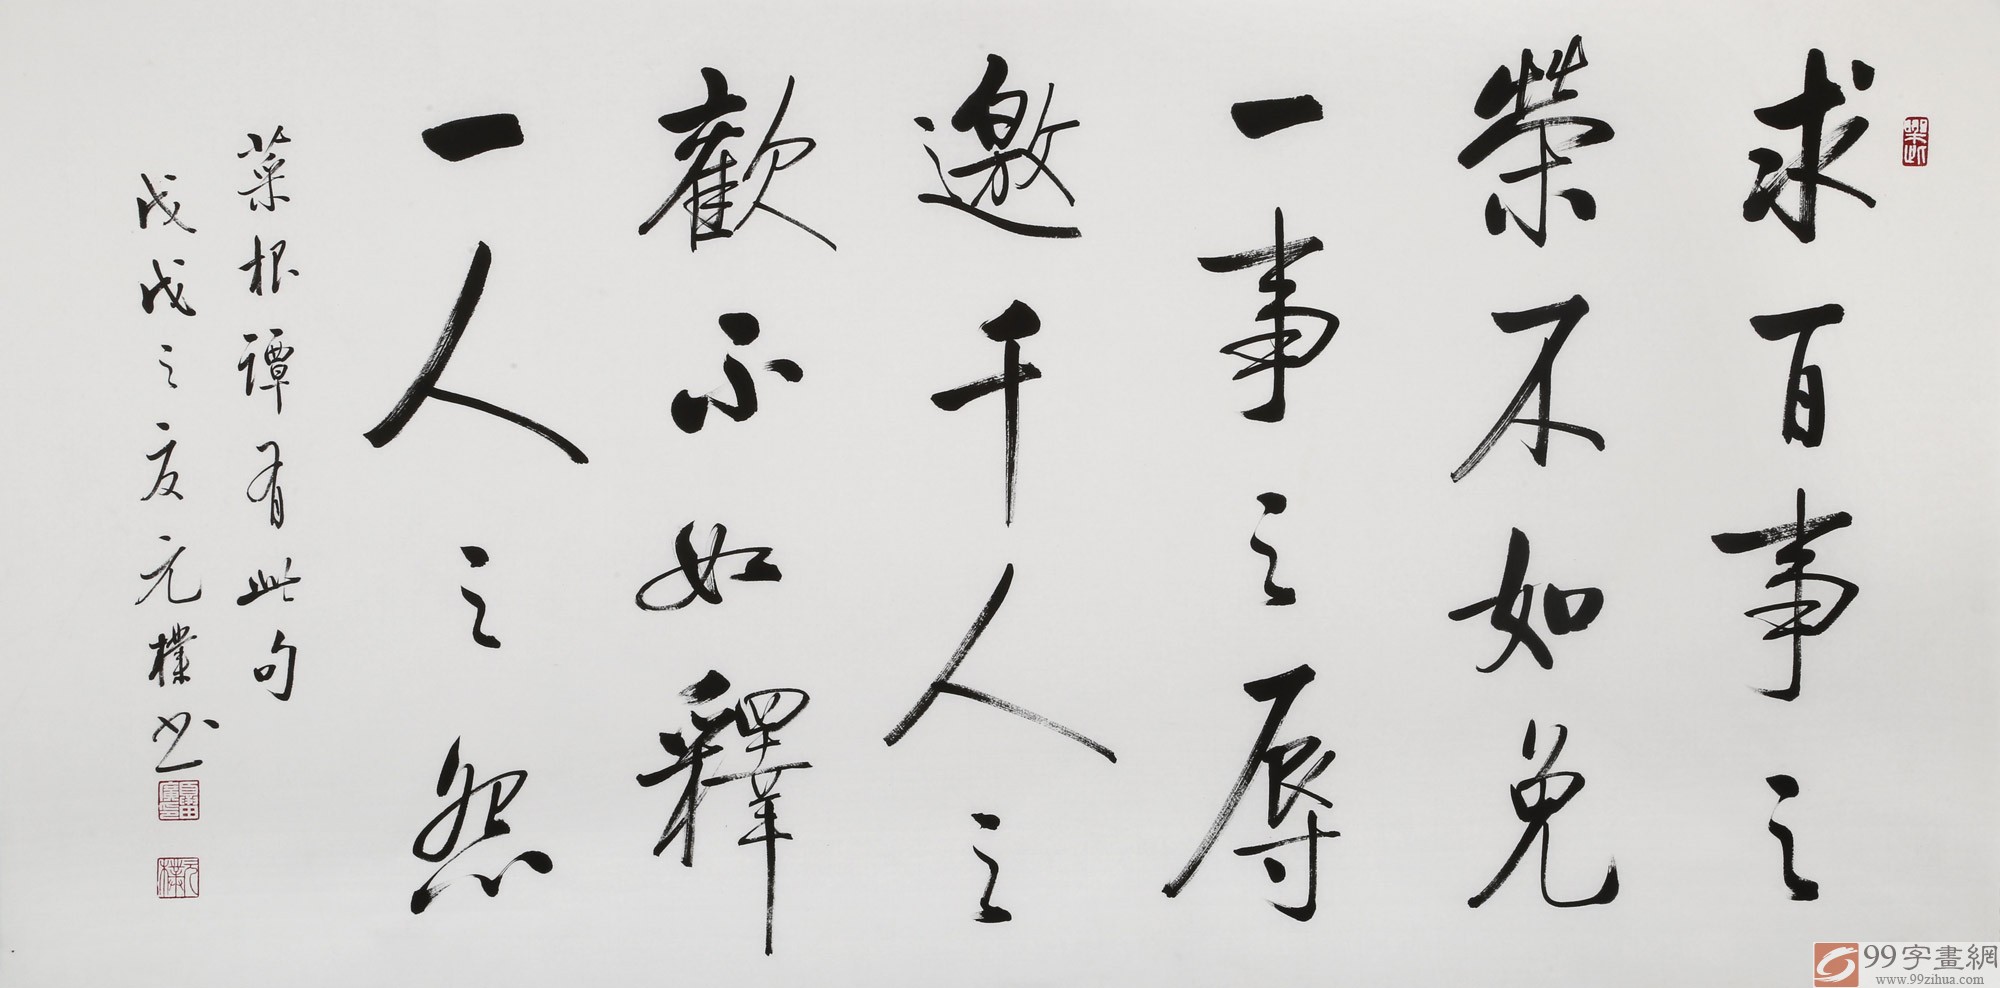 求百事之
榮不如免
一事之辱
邀千人之
歡不如釋
一人之怨
菜根谭有此句
戊戌之夏元樸书
99字畫網
www.99zihua.com